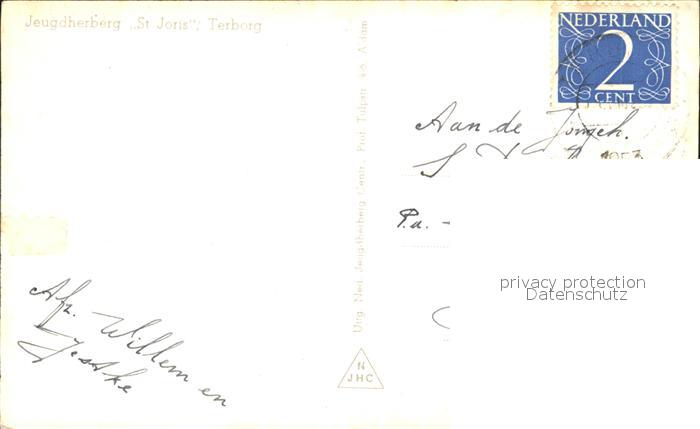 Jeugdherberg „St Joris"; Terborg
NEDERLAND
2
CENT
1953
Aan de Jongh.
P.a. -
privacy protection
Datenschutz
Uitg. Ned. Jeugdherberg Centr. Prof. Tulpstr. A'dam
Afz. Willem en
N
JHC